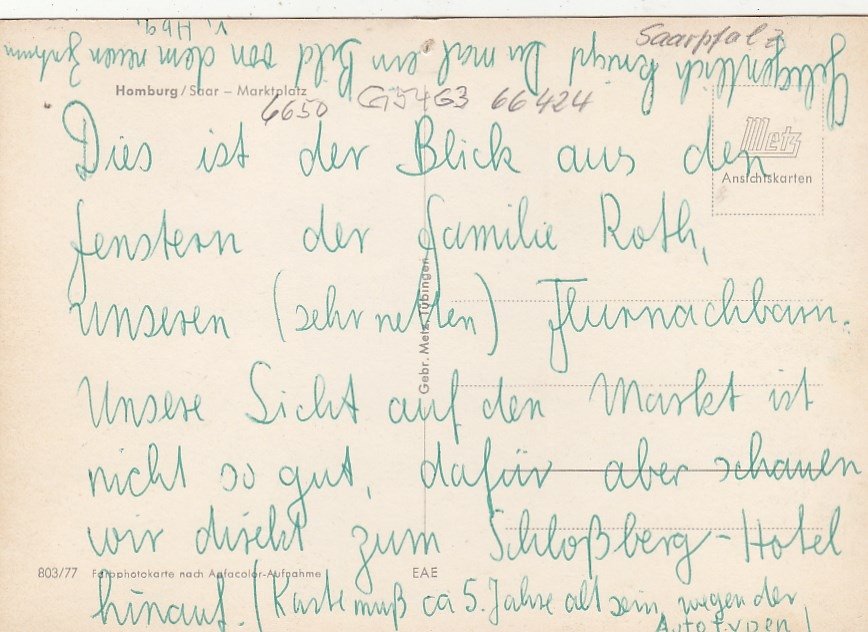 Saarpfalz
Gelegentlich kriegst Du mal ein Bild von dem neuen
v. Hbg.
Homburg/Saar – Marktplatz
6650 G5463 66424
Metz
Ansichtskarten
Dies ist der Blick aus den
fenstern der Familie Roth,
unseren (sehr netten) Flurnachbarn.
Unsere Sicht auf den Markt ist
nicht so gut, dafür aber schauen
wir direkt zum Schloßberg-Hotel
hinauf. (Karte muß ca 5 Jahre alt sein, wegen der
Autotypen!
Gebr. Metz, Tübingen
803/77 Farbphotokarte nach Agfacolor-Aufnahme EAE